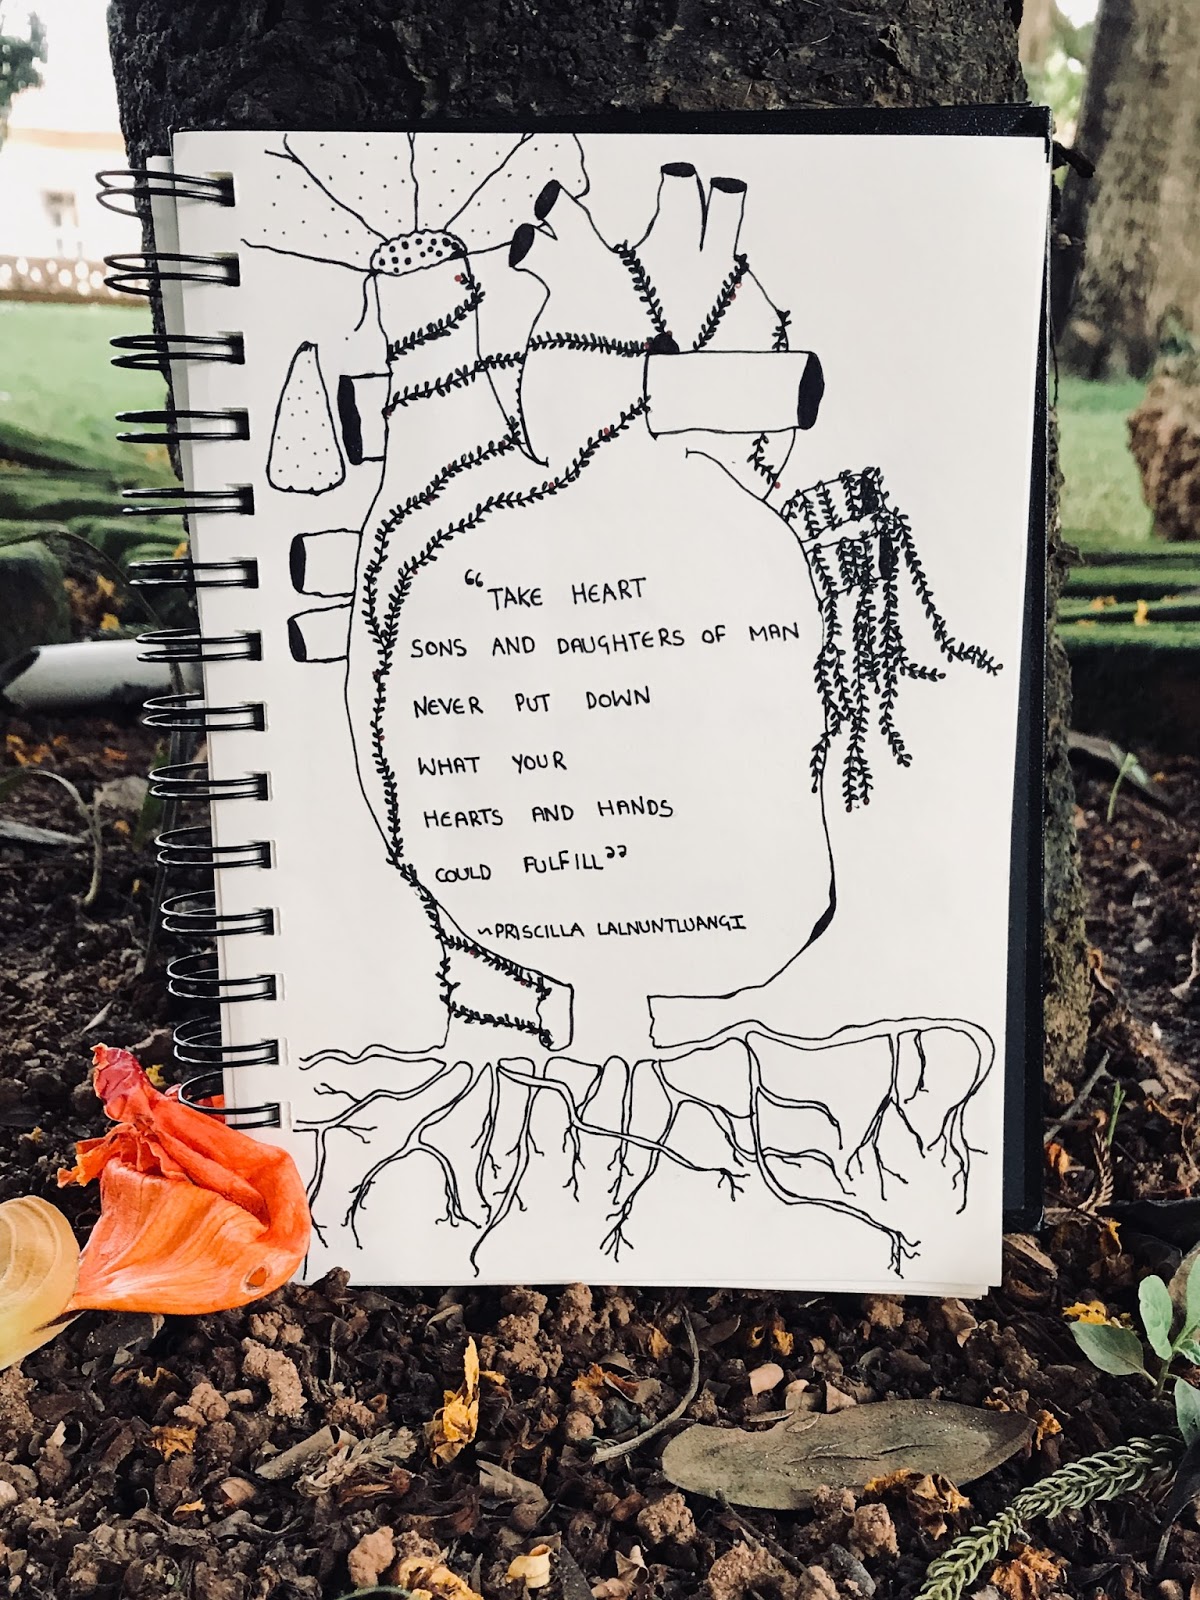 “TAKE HEART
SONS AND DAUGHTERS OF MAN
NEVER PUT DOWN
WHAT YOUR
HEARTS AND HANDS
COULD FULFILL”
~PRISCILLA LALNUNTLUANGI